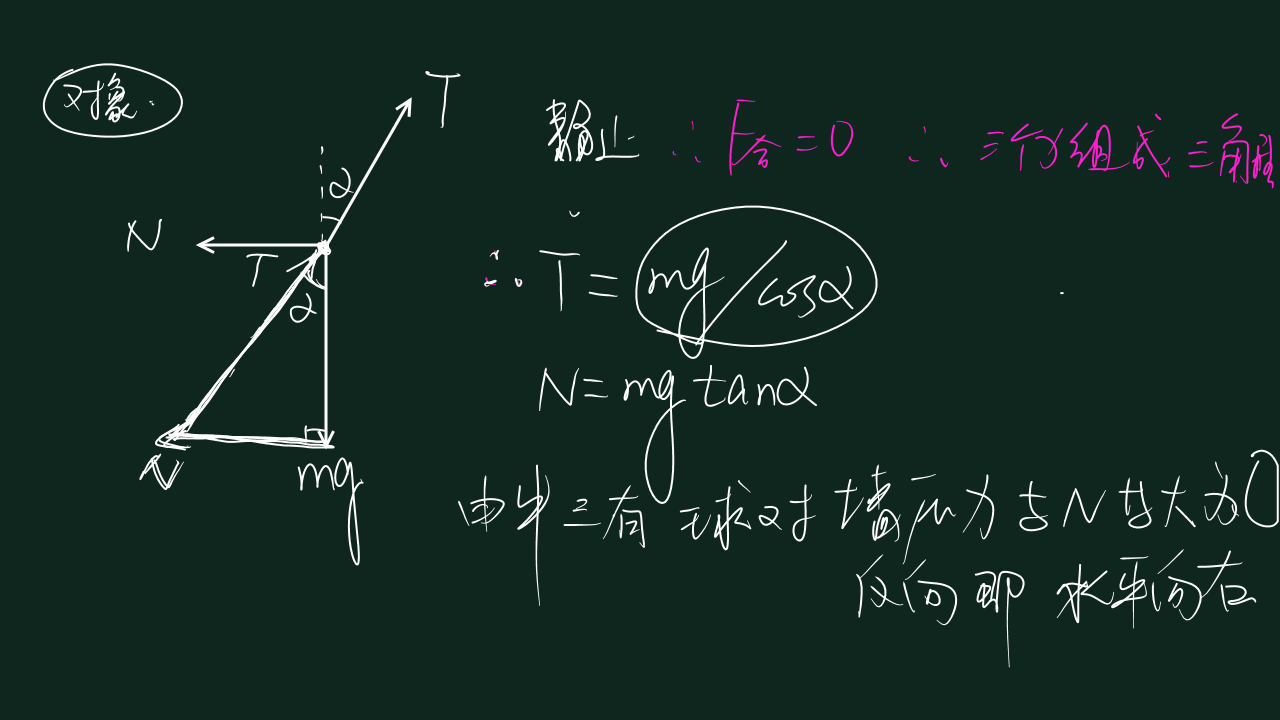 对象
T
α
N
T
α
N
mg
静止 ∴ F合=0 ∴ 三个力组成三角形
∴ T = mg/cosα
N=mg tanα
由牛三有 球对墙压力与N
反向即 水平向右